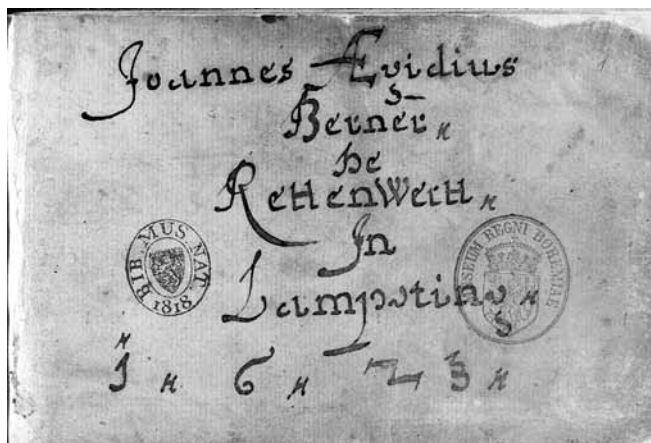 Joannes Ægidius
Berner
de
RettenWertt
In
Lampoting
1 6 2 3
BIB. MUS. NAT.
1818
MUSEUM REGNI BOHEMIAE